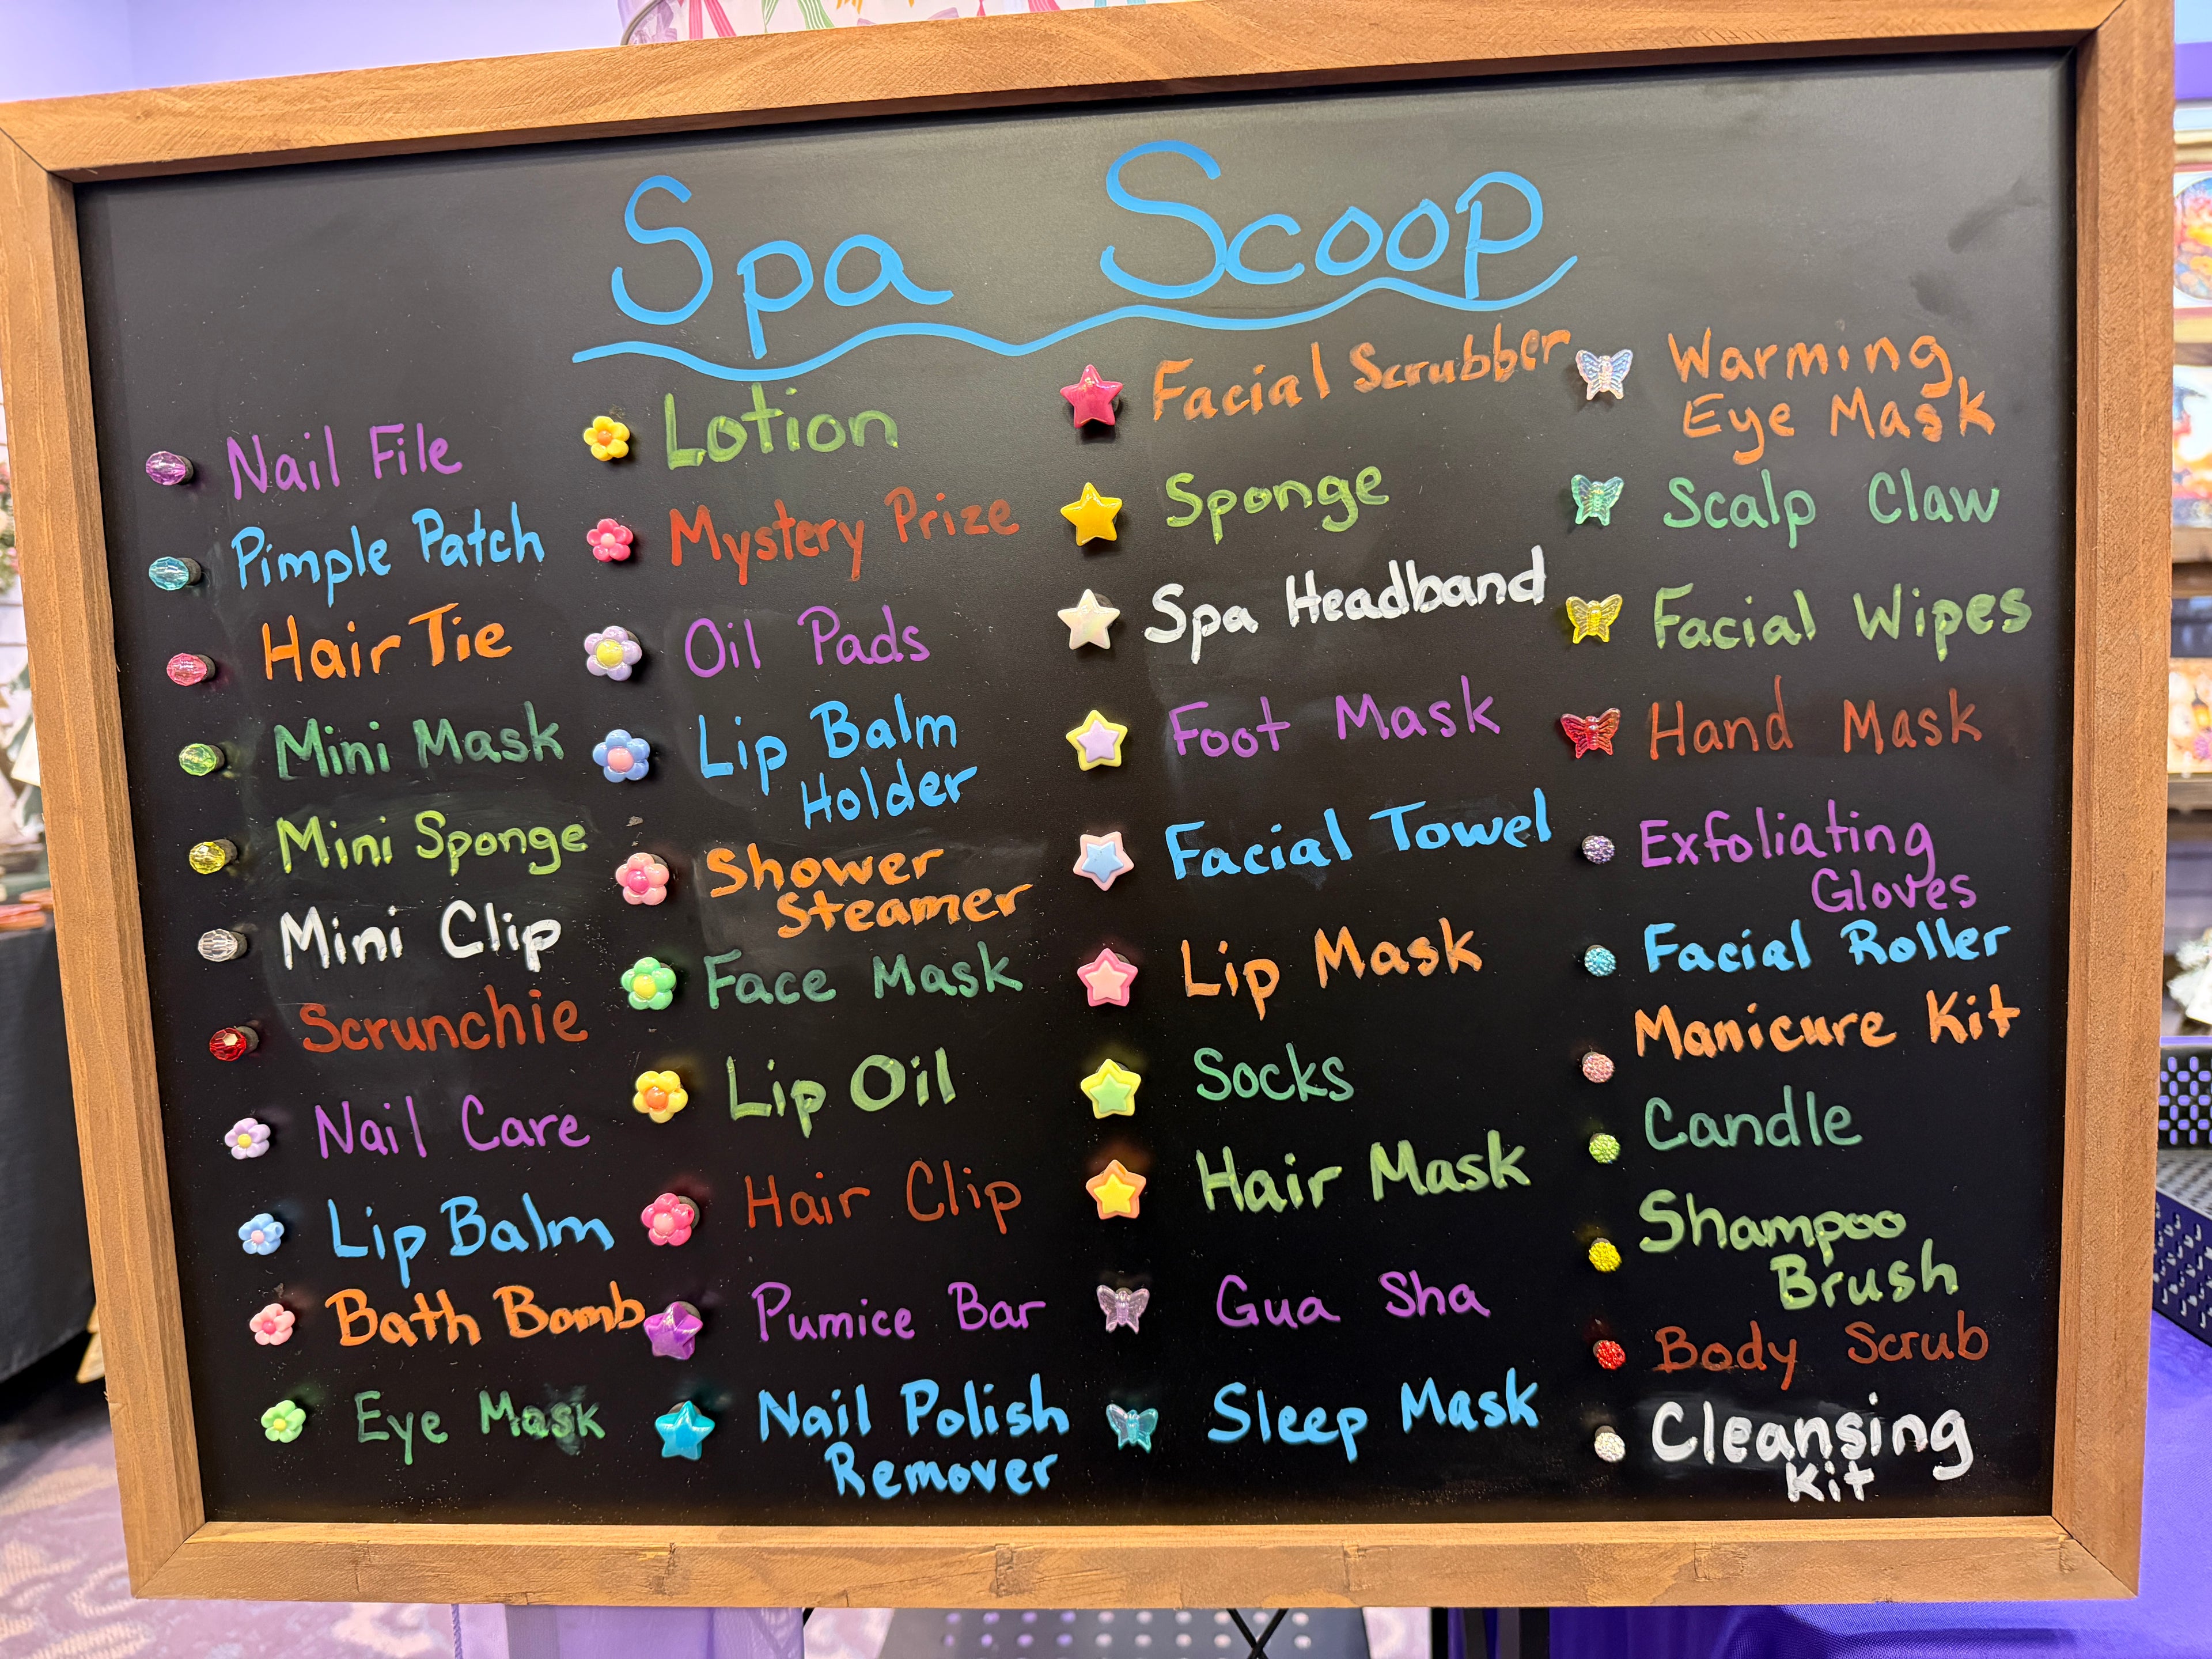 Spa Scoop
Nail File
Pimple Patch
Hair Tie
Mini Mask
Mini Sponge
Mini Clip
Scrunchie
Nail Care
Lip Balm
Bath Bomb
Eye Mask
Lotion
Mystery Prize
Oil Pads
Lip Balm
Holder
Shower
Steamer
Face Mask
Lip Oil
Hair Clip
Pumice Bar
Nail Polish
Remover
Facial Scrubber
Sponge
Spa Headband
Foot Mask
Facial Towel
Lip Mask
Socks
Hair Mask
Gua Sha
Sleep Mask
Warming
Eye Mask
Scalp Claw
Facial Wipes
Hand Mask
Exfoliating
Gloves
Facial Roller
Manicure Kit
Candle
Shampoo
Brush
Body Scrub
Cleansing
Kit